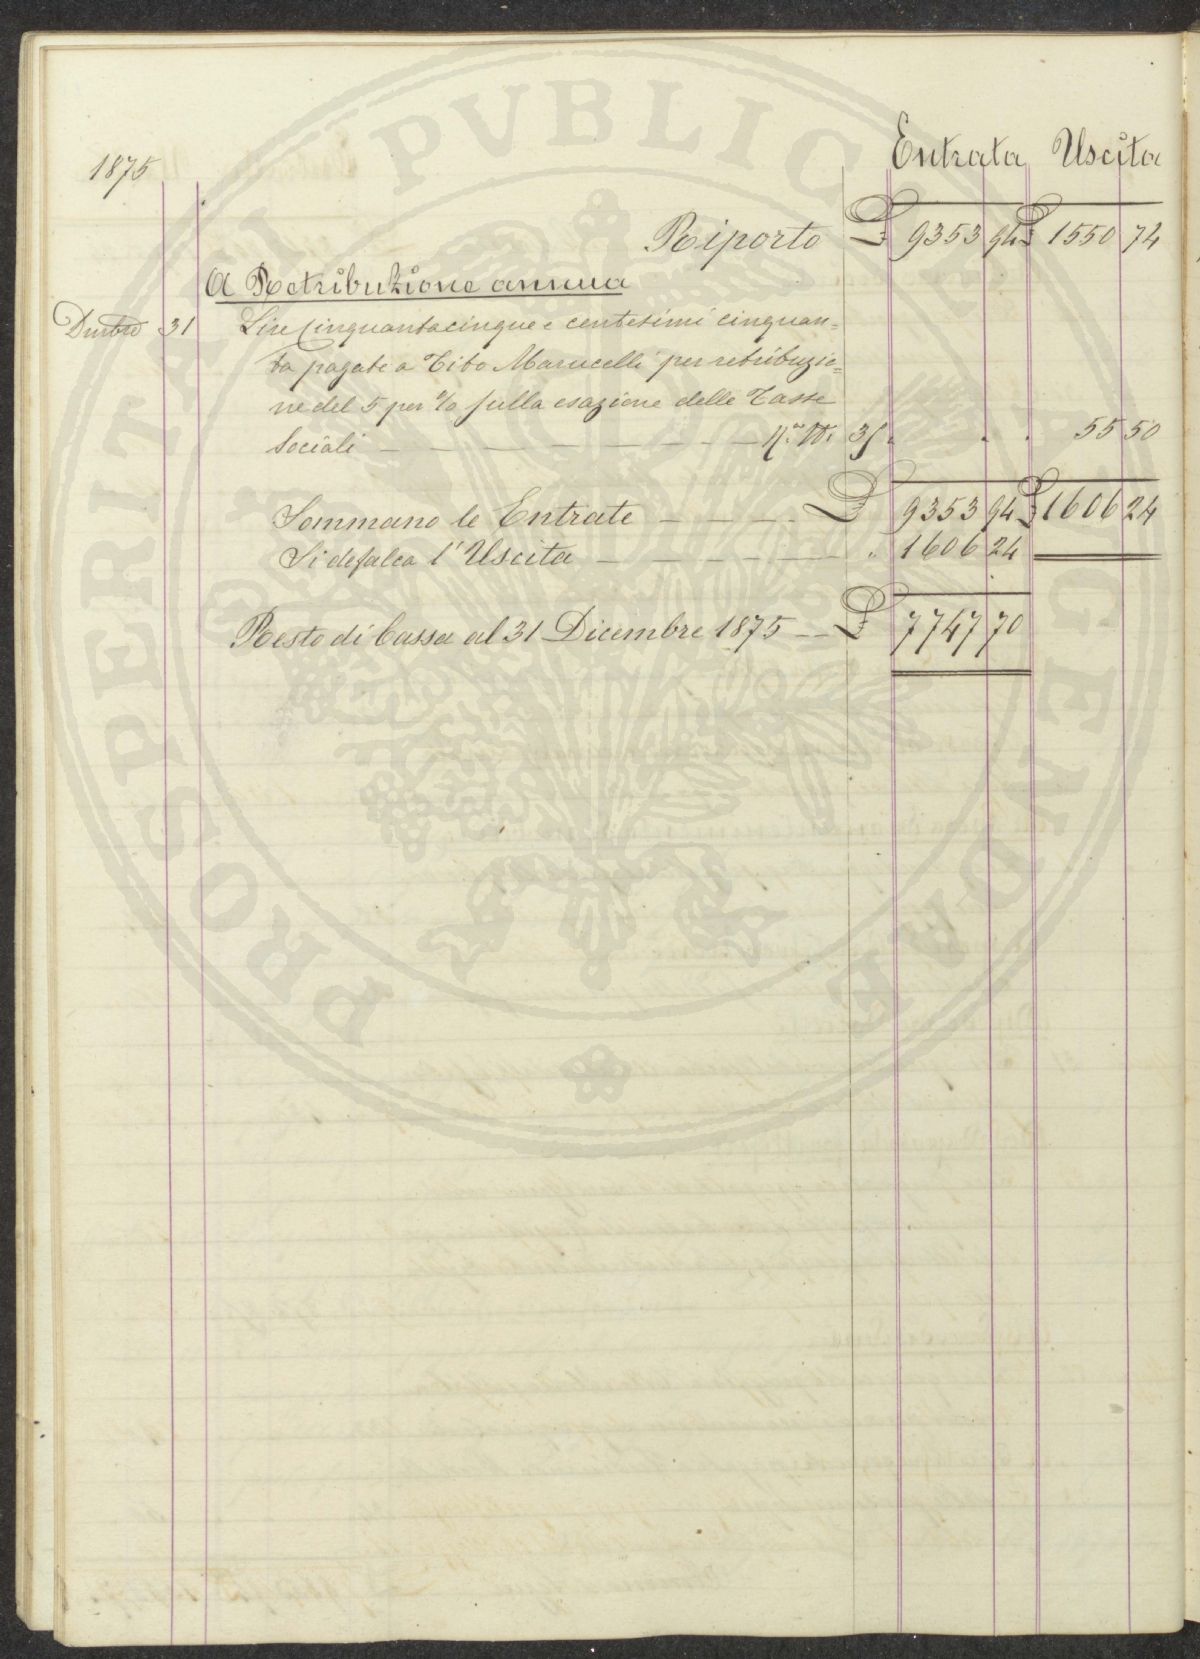 Entrata Uscita
1875
Riporto £ 9353 94 £ 1550 74
A Retribuzione annua
Dmbre 31 Lire Cinquantacinque e centesimi cinquan=
ta pagate a Tito Marucelli per retribuzio=
ne del 5 per % sulla esazione delle Tasse
Sociali 35 . . . 55 50
Sommano le Entrate £ 9353 94 £ 1606 24
Si defalca l'Uscita " 1606 24
Resto di Cassa al 31 Dicembre 1875 £ 7747 70
PROSPERITATI PVBLICAE AVGENDAE